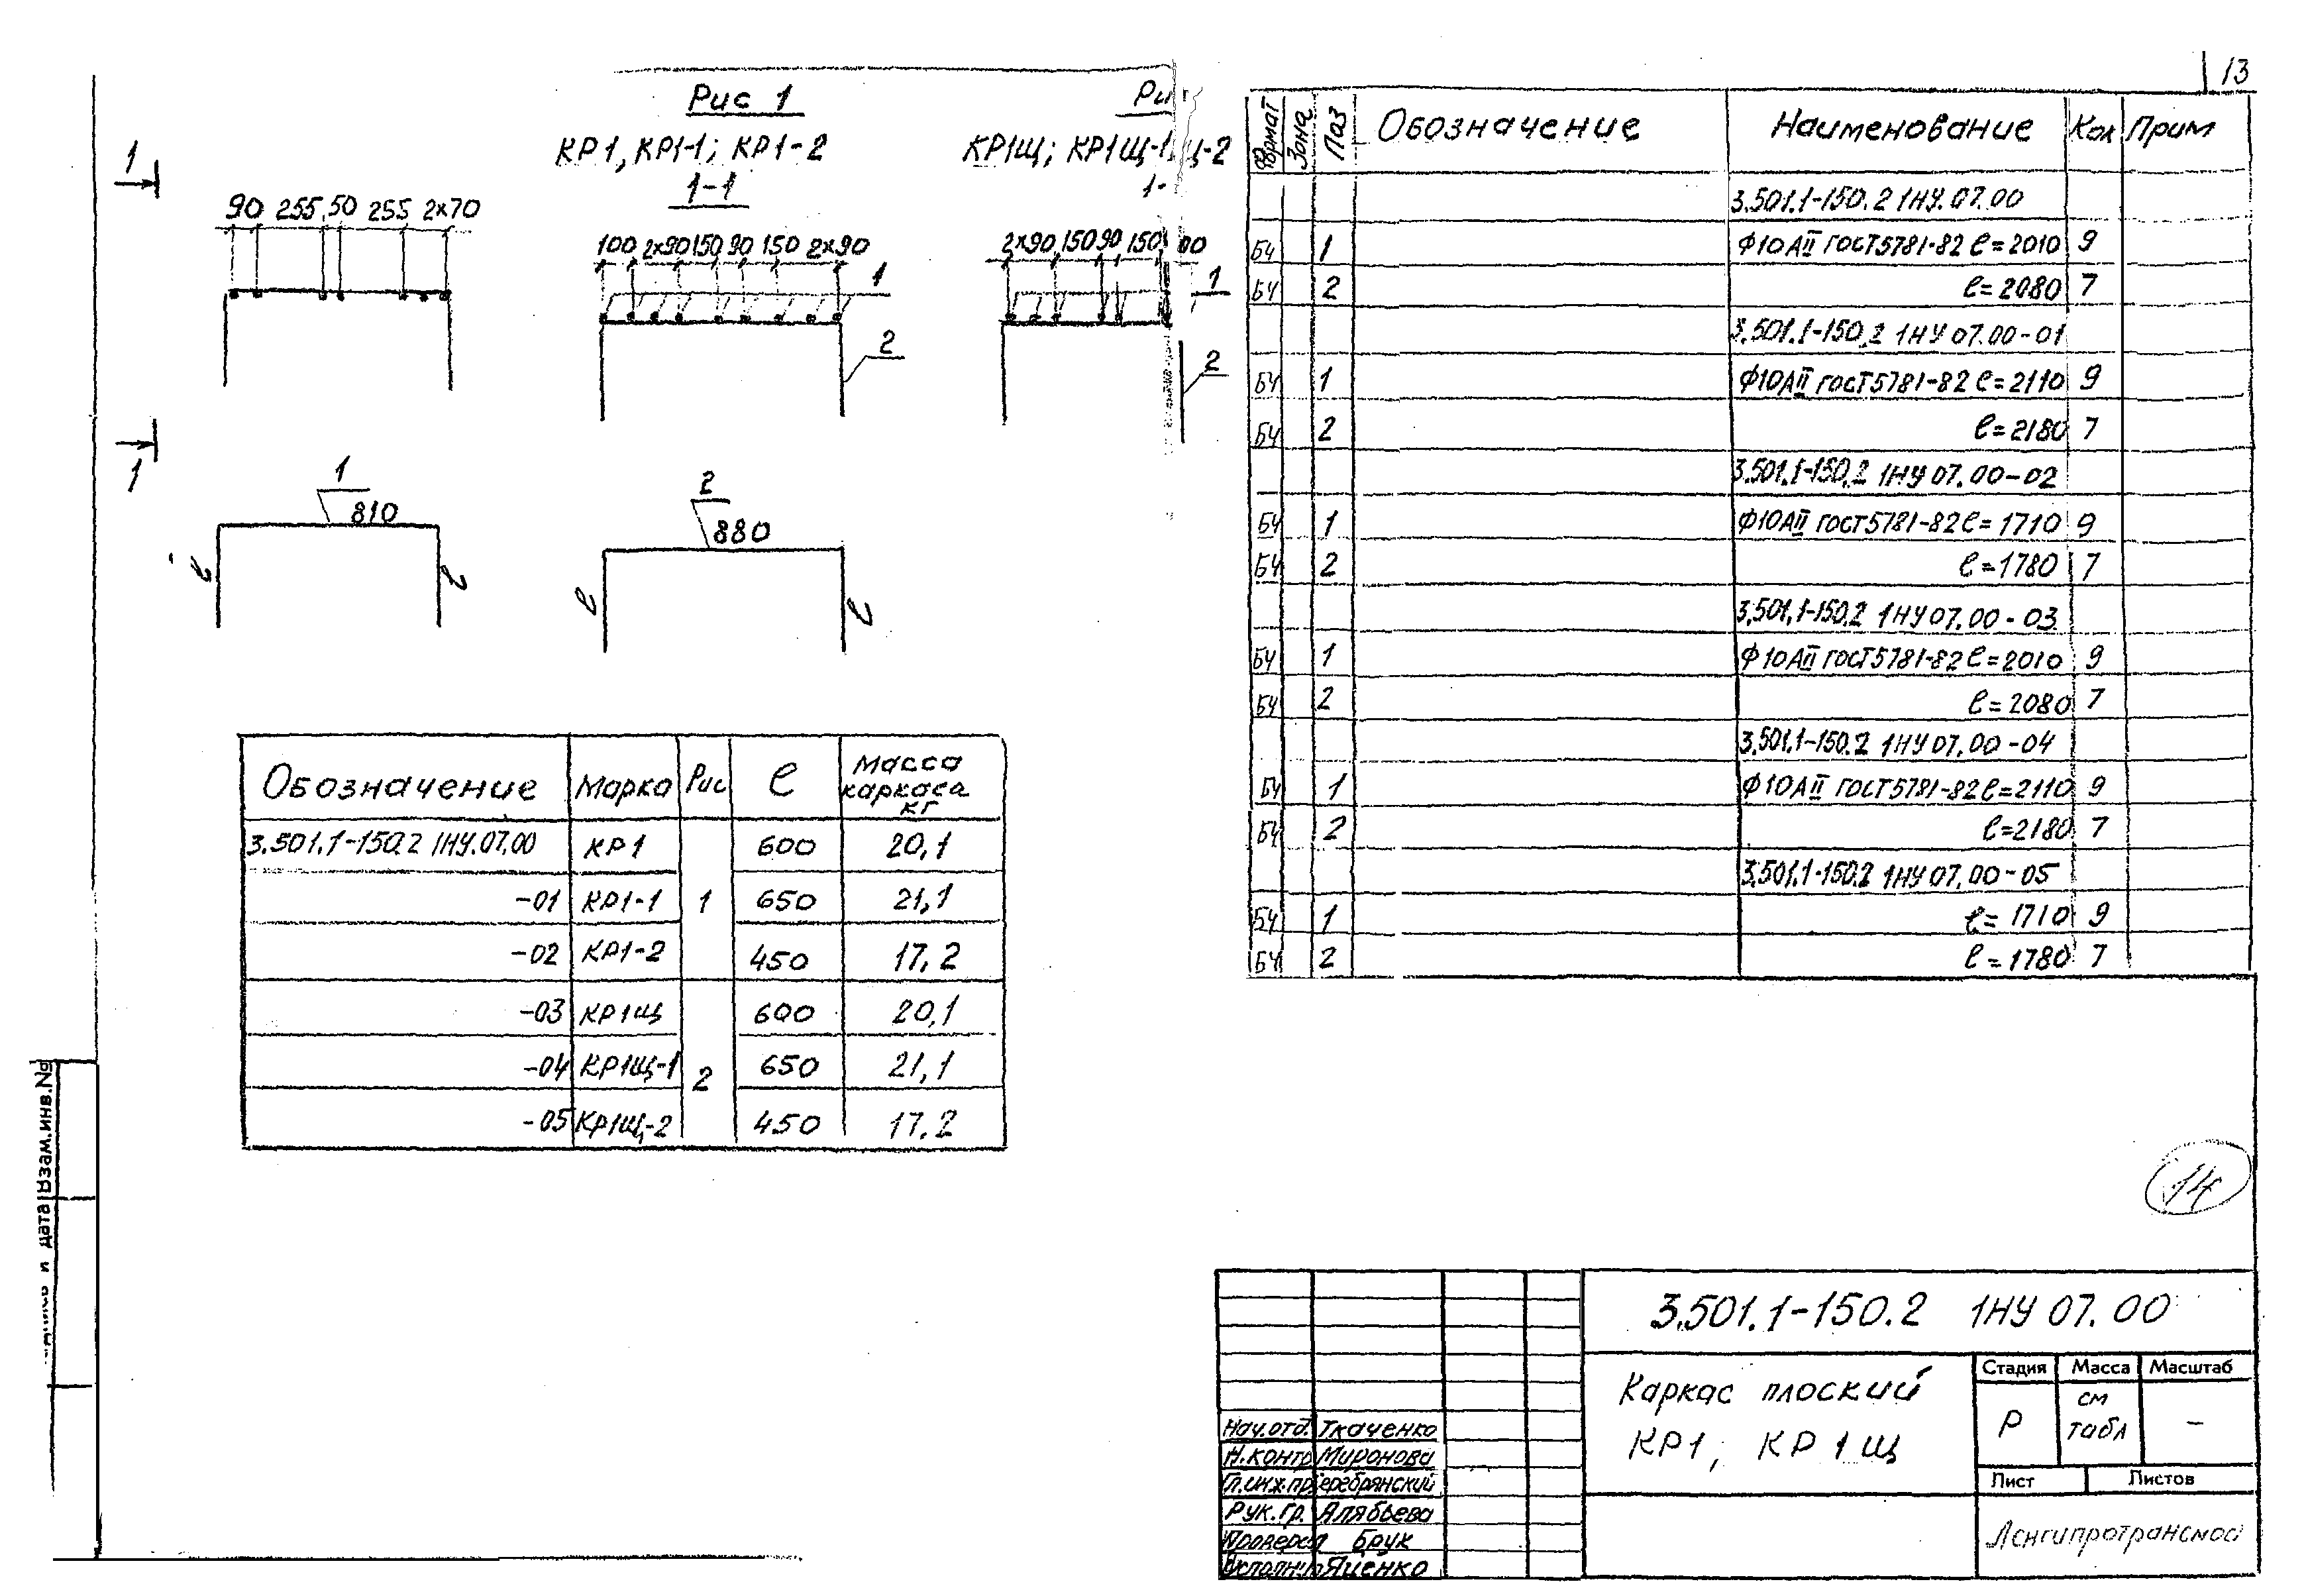 13
Рис 1
КР1, КР1-1; КР1-2
1-1
КР1Щ; КР1Щ-1
Щ-2
1
90 255 50 255 2×70
100 2×90 150 90 150 2×90
1
2
2×90 150 90 150
1
2
1
1
810
ℓ
ℓ
2
880
ℓ
ℓ
Обозначение Марка Рис ℓ Масса каркаса кг
3.501.1-150.2 1НУ.07.00 КР1 600 20,1
-01 КР1-1 1 650 21,1
-02 КР1-2 450 17,2
-03 КР1Щ 600 20,1
-04 КР1Щ-1 2 650 21,1
-05 КР1Щ-2 450 17.2
Формат Зона Паз Обозначение Наименование Кол Прим
3.501.1-150.2 1НУ.07.00
БЧ 1 Ф10АII ГОСТ5781-82 ℓ=2010 9
БЧ 2 ℓ=2080 7
3.501.1-150.2 1НУ 07.00-01
БЧ 1 Ф10АII ГОСТ5781-82 ℓ=2110 9
БЧ 2 ℓ=2180 7
3.501.1-150.2 1НУ 07.00-02
БЧ 1 Ф10АII ГОСТ5781-82 ℓ=1710 9
БЧ 2 ℓ=1780 7
3.501.1-150.2 1НУ 07.00-03
БЧ 1 Ф10АII ГОСТ5781-82 ℓ=2010 9
БЧ 2 ℓ=2080 7
3.501.1-150.2 1НУ 07.00-04
БЧ 1 Ф10АII ГОСТ5781-82 ℓ=2110 9
БЧ 2 ℓ=2180 7
3.501.1-150.2 1НУ 07.00-05
БЧ 1 ℓ=1710 9
БЧ 2 ℓ=1780 7
14
Взам.инв.№
и дата
3.501.1-150.2 1НУ 07.00
Каркас плоский
КР1; КР1Щ
Стадия Масса Масштаб
Р см табл –
Лист Листов
Ленгипротрансмос
Нач.отд. Ткаченко
Н.контр Миронова
Гл.инж.пр еребрянский
Рук.гр. Алябьева
Проверил Брук
Исполнил Яценко